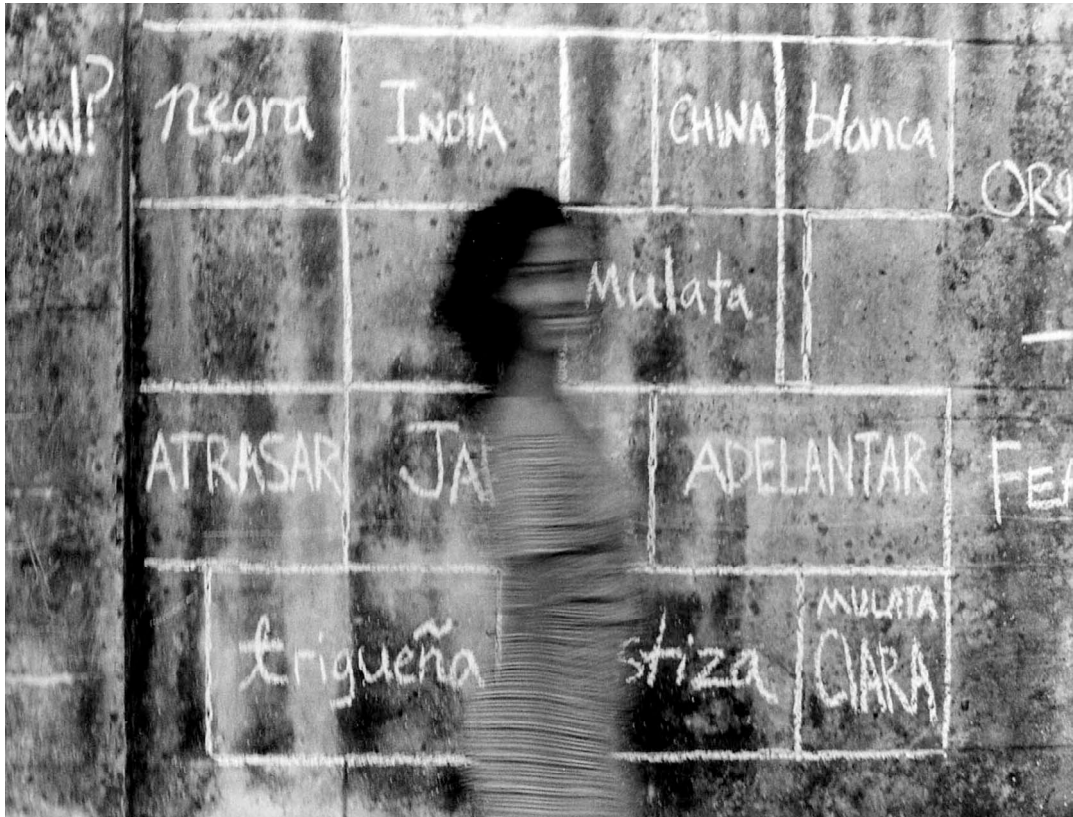 Cual?
negra
INDIA
CHINA
blanca
Mulata
ATRASAR
ADELANTAR
trigueña
MULATA
CLARA